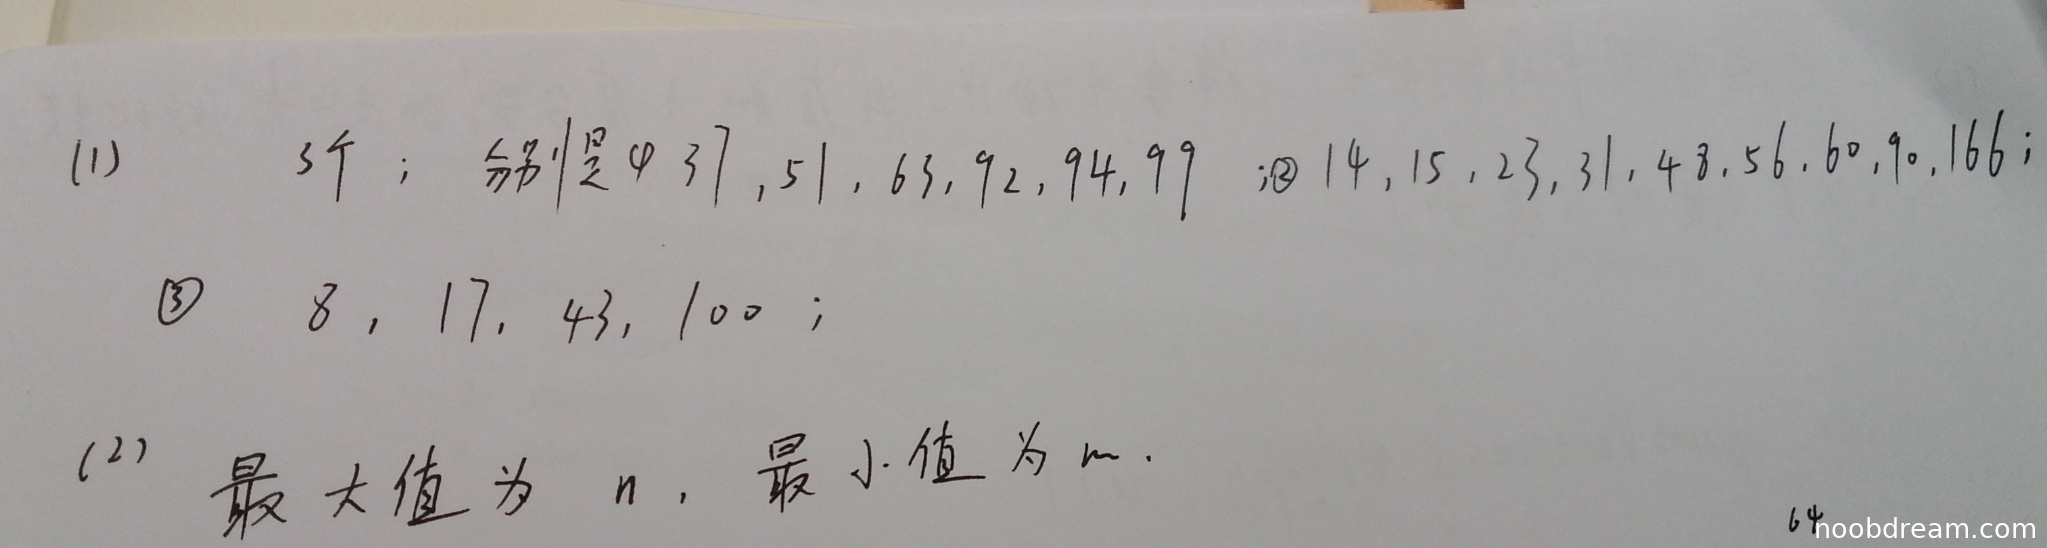 (1) 3个；分别是① 37，51，63，92，94，99；② 14，15，23，31，48，56，60，90，166；
③ 8，17，43，100；
(2) 最大值为 n，最小值为 m．
64
noobdream.com